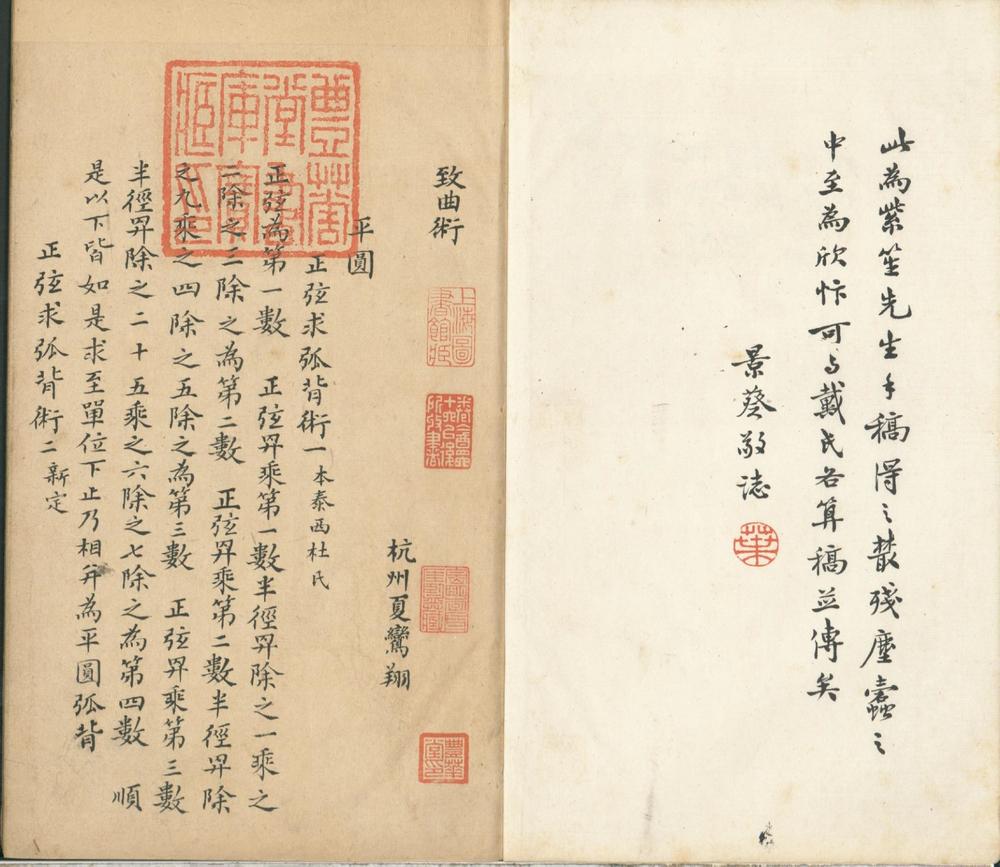 此為紫笙先生手稿得之叢殘塵蠹之
中至為欣忭可与戴氏各算稿並傳矣
景葵敬誌
葉
致曲術
上海圖書館藏
杭州夏鸞翔
平圓
正弦求弧背術一本泰西杜氏
正弦為第一數 正弦昇乘第一數半徑昇除之一乘之
二除之三除之為第二數 正弦昇乘第二數半徑昇除
之九乘之四除之五除之為第三數 正弦昇乘第三數
半徑昇除之二十五乘之六除之七除之為第四數 順
是以下皆如是求至單位下止乃相并為平圓弧背
正弦求弧背術二新定
豐華堂書庫寶藏印
豐華堂印